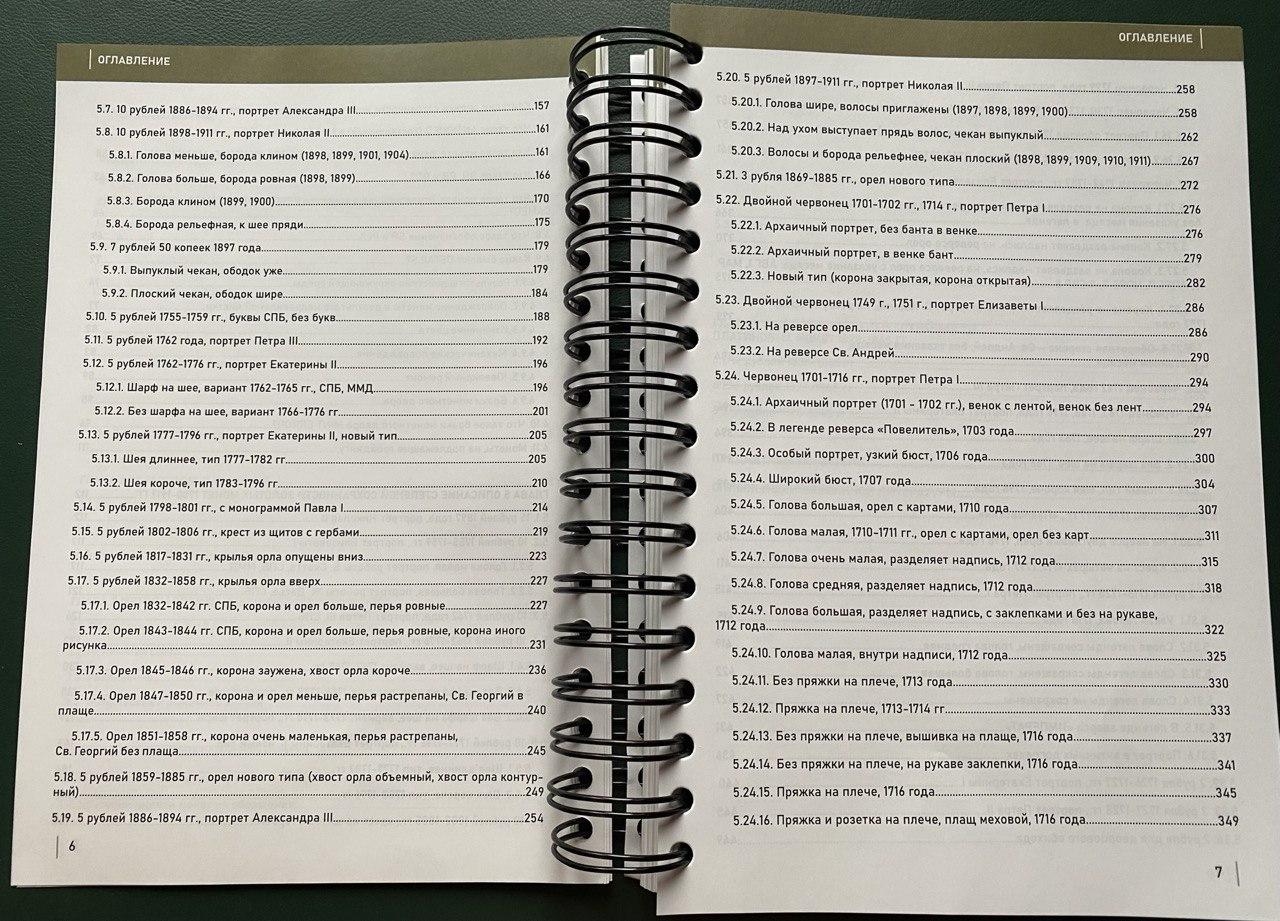 ОГЛАВЛЕНИЕ
5.7. 10 рублей 1886-1894 гг., портрет Александра III...157
5.8. 10 рублей 1898-1911 гг., портрет Николая II...161
5.8.1. Голова меньше, борода клином (1898, 1899, 1901, 1904)...161
5.8.2. Голова больше, борода ровная (1898, 1899)...166
5.8.3. Борода клином (1899, 1900)...170
5.8.4. Борода рельефная, к шее пряди...175
5.9. 7 рублей 50 копеек 1897 года...179
5.9.1. Выпуклый чекан, ободок уже...179
5.9.2. Плоский чекан, ободок шире...184
5.10. 5 рублей 1755-1759 гг., буквы СПБ, без букв...188
5.11. 5 рублей 1762 года, портрет Петра III...192
5.12. 5 рублей 1762-1776 гг., портрет Екатерины II...196
5.12.1. Шарф на шее, вариант 1762-1765 гг., СПБ, ММД...196
5.12.2. Без шарфа на шее, вариант 1766-1776 гг...201
5.13. 5 рублей 1777-1796 гг., портрет Екатерины II, новый тип...205
5.13.1. Шея длиннее, тип 1777-1782 гг...205
5.13.2. Шея короче, тип 1783-1796 гг...210
5.14. 5 рублей 1798-1801 гг., с монограммой Павла I...214
5.15. 5 рублей 1802-1806 гг., крест из щитов с гербами...219
5.16. 5 рублей 1817-1831 гг., крылья орла опущены вниз...223
5.17. 5 рублей 1832-1858 гг., крылья орла вверх...227
5.17.1. Орел 1832-1842 гг. СПБ, корона и орел больше, перья ровные...227
5.17.2. Орел 1843-1844 гг. СПБ, корона и орел больше, перья ровные, корона иного
рисунка...231
5.17.3. Орел 1845-1846 гг., корона заужена, хвост орла короче...236
5.17.4. Орел 1847-1850 гг., корона и орел меньше, перья растрепаны, Св. Георгий в
плаще...240
5.17.5. Орел 1851-1858 гг., корона очень маленькая, перья растрепаны,
Св. Георгий без плаща...245
5.18. 5 рублей 1859-1885 гг., орел нового типа (хвост орла объемный, хвост орла контур-
ный)...249
5.19. 5 рублей 1886-1894 гг., портрет Александра III...254
6
ОГЛАВЛЕНИЕ
5.20. 5 рублей 1897-1911 гг., портрет Николая II...258
5.20.1. Голова шире, волосы приглажены (1897, 1898, 1899, 1900)...258
5.20.2. Над ухом выступает прядь волос, чекан выпуклый...262
5.20.3. Волосы и борода рельефнее, чекан плоский (1898, 1899, 1909, 1910, 1911)...267
5.21. 3 рубля 1869-1885 гг., орел нового типа...272
5.22. Двойной червонец 1701-1702 гг., 1714 г., портрет Петра I...276
5.22.1. Архаичный портрет, без банта в венке...276
5.22.2. Архаичный портрет, в венке бант...279
5.22.3. Новый тип (корона закрытая, корона открытая)...282
5.23. Двойной червонец 1749 г., 1751 г., портрет Елизаветы I...286
5.23.1. На реверсе орел...286
5.23.2. На реверсе Св. Андрей...290
5.24. Червонец 1701-1716 гг., портрет Петра I...294
5.24.1. Архаичный портрет (1701 - 1702 гг.), венок с лентой, венок без лент...294
5.24.2. В легенде реверса «Повелитель», 1703 года...297
5.24.3. Особый портрет, узкий бюст, 1706 года...300
5.24.4. Широкий бюст, 1707 года...304
5.24.5. Голова большая, орел с картами, 1710 года...307
5.24.6. Голова малая, 1710-1711 гг., орел с картами, орел без карт...311
5.24.7. Голова очень малая, разделяет надпись, 1712 года...315
5.24.8. Голова средняя, разделяет надпись, 1712 года...318
5.24.9. Голова большая, разделяет надпись, с заклепками и без на рукаве,
1712 года...322
5.24.10. Голова малая, внутри надписи, 1712 года...325
5.24.11. Без пряжки на плече, 1713 года...330
5.24.12. Пряжка на плече, 1713-1714 гг...333
5.24.13. Без пряжки на плече, вышивка на плаще, 1716 года...337
5.24.14. Без пряжки на плече, на рукаве заклепки, 1716 года...341
5.24.15. Пряжка на плече, 1716 года...345
5.24.16. Пряжка и розетка на плече, плащ меховой, 1716 года...349
7